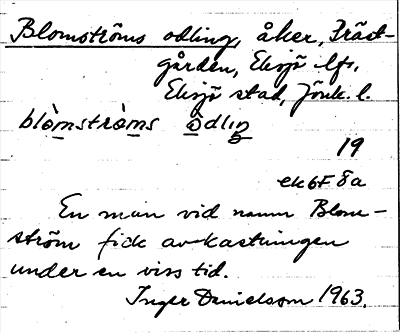 Blomströms odling, åker, Präst-
gården, Eksjö lfs,
Eksjö stad, Jönk. l.
blòmstròms òdlıŋ
19
ek 6F 8a
En man vid namn Blom-
ström fick avkastningen
under en viss tid.
Inger Danielsson 1963.